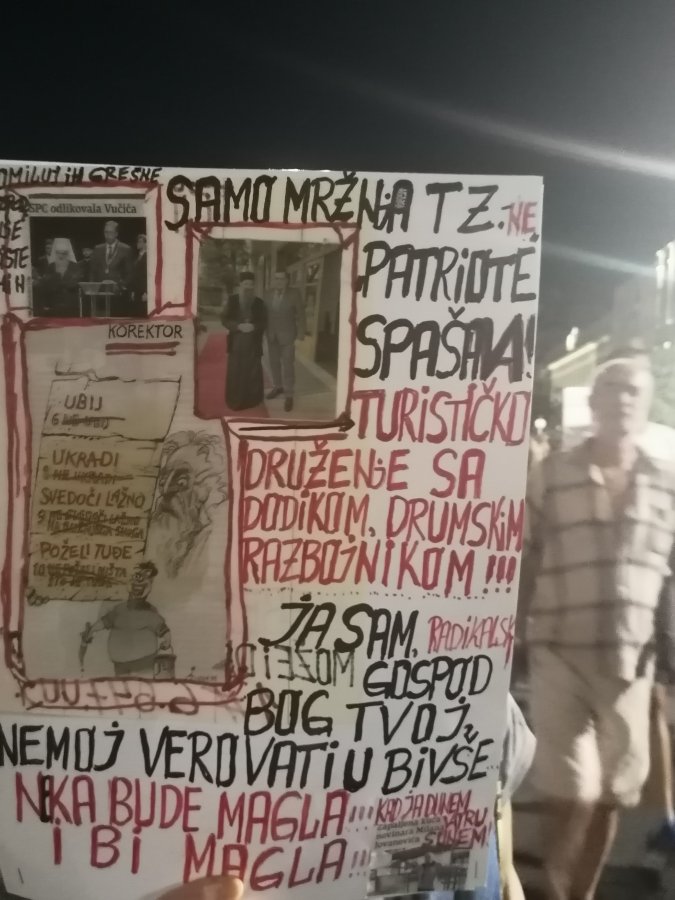 OMILUJ IH GREŠNE
SPC odlikovala Vučića
SAMO MRŽNJA TZ. NE
PATRIOTE
SPAŠAVA!
KOREKTOR
UBIJ
UKRADI
SVEDOČI LAŽNO
POŽELI TUĐE
TURISTIČKO
DRUŽENJE SA
DODIKOM, DRUMSKIM
RAZBOJNIKOM!!!
JA SAM, RADIKALSKI
GOSPOD
BOG TVOJ,
NEMOJ VEROVATI U BIVŠE
NEKA BUDE MAGLA!!!
I BI MAGLA!!!
KAD JA DUNEM
VATRU
zapaljena kuća
novinara Milana
Jovanovića